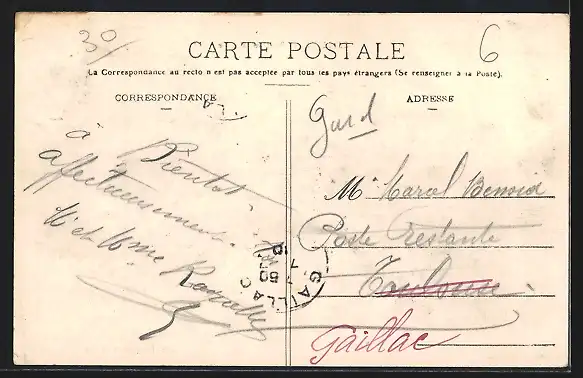 30/
6
CARTE POSTALE
La Correspondance au recto n'est pas acceptée par tous les pays étrangers (Se renseigner à la Poste).
CORRESPONDANCE
à Bientôt
affectueusement
M et Mme
ADRESSE
Gard
Mr Marcel Benoid
Poste restante
Toulouse
Gaillac
GAILLAC